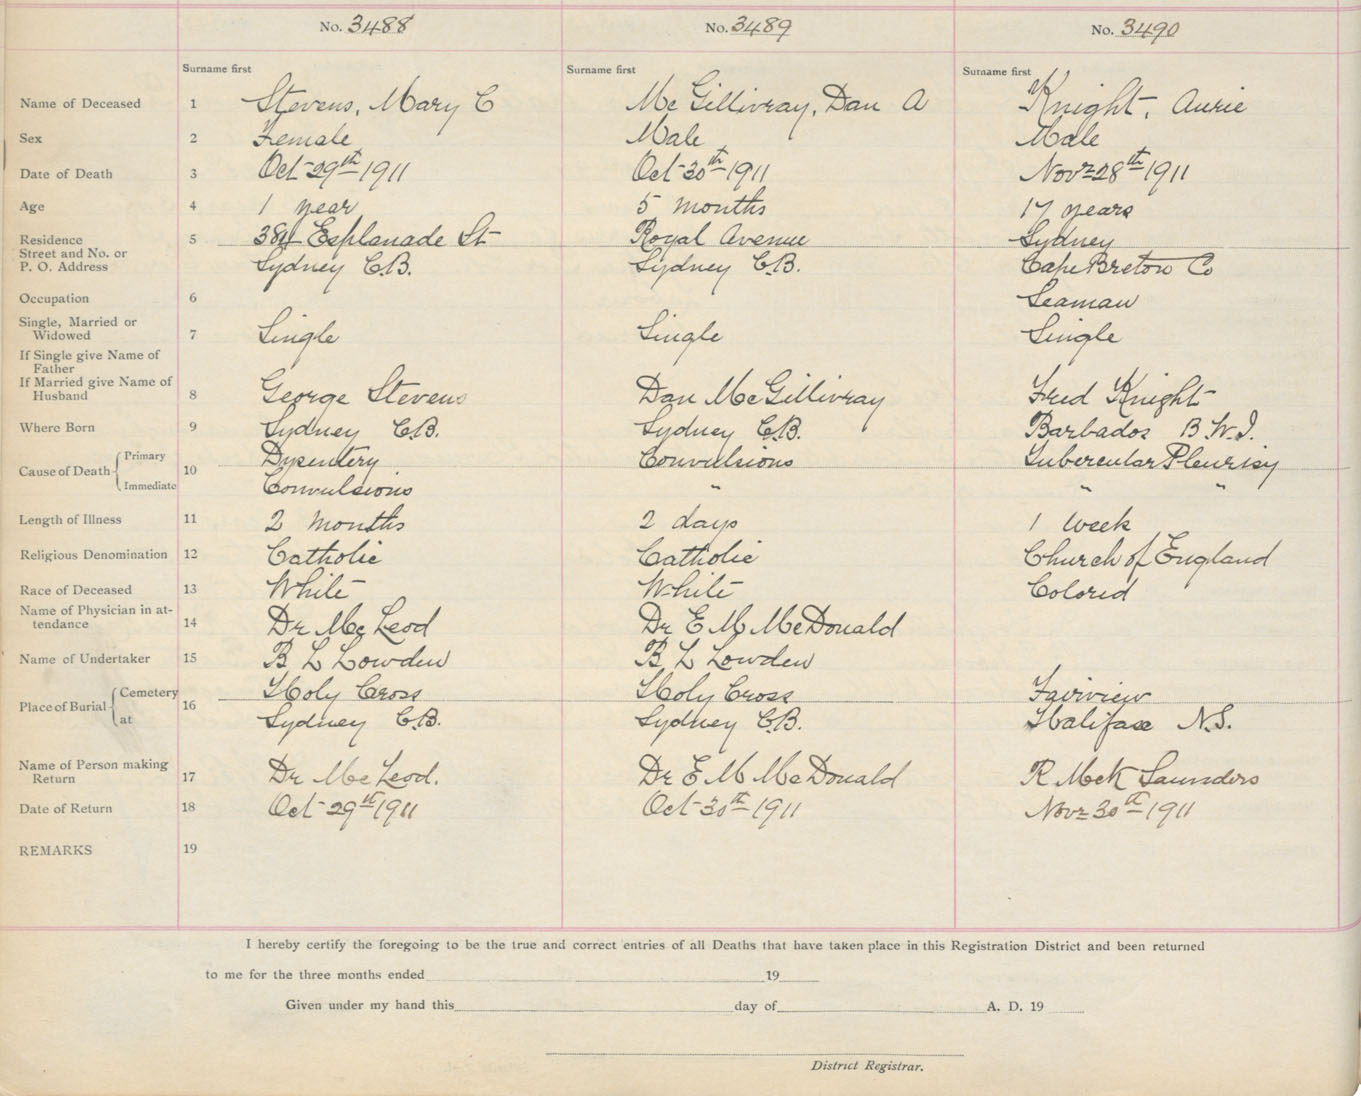 No. 3488 No. 3489 No. 3490
Surname first Surname first Surname first
Name of Deceased 1 Stevens, Mary C Mc Gillivray, Dan A Knight, Aurie
Sex 2 Female Male Male
Date of Death 3 Oct 29th 1911 Oct 30th 1911 Nov 28th 1911
Age 4 1 year 5 months 17 years
Residence 5 384 Esplanade St Royal Avenue Sydney
Street and No. or
P. O. Address Sydney C.B. Sydney C.B. Cape Breton Co
Occupation 6 Seaman
Single, Married or
Widowed 7 Single Single Single
If Single give Name of
Father
If Married give Name of
Husband 8 George Stevens Dan McGillivray Fred Knight
Where Born 9 Sydney C.B. Sydney C.B. Barbados B.W.I.
Cause of Death 10 Primary Dysentery Convulsions Tubercular Pleurisy
Immediate Convulsions " " "
Length of Illness 11 2 months 2 days 1 week
Religious Denomination 12 Catholic Catholic Church of England
Race of Deceased 13 White White Colored
Name of Physician in at-
tendance 14 Dr Mc Leod Dr E M McDonald
Name of Undertaker 15 B L Lowden B L Lowden
Place of Burial 16 Cemetery Holy Cross Holy Cross Fairview
at Sydney C.B. Sydney C.B. Halifax N.S.
Name of Person making
Return 17 Dr Mc Leod. Dr E M McDonald R McK Saunders
Date of Return 18 Oct 29th 1911 Oct 30th 1911 Nov 30th 1911
REMARKS 19
I hereby certify the foregoing to be the true and correct entries of all Deaths that have taken place in this Registration District and been returned
to me for the three months ended 19
Given under my hand this day of A. D. 19
District Registrar.